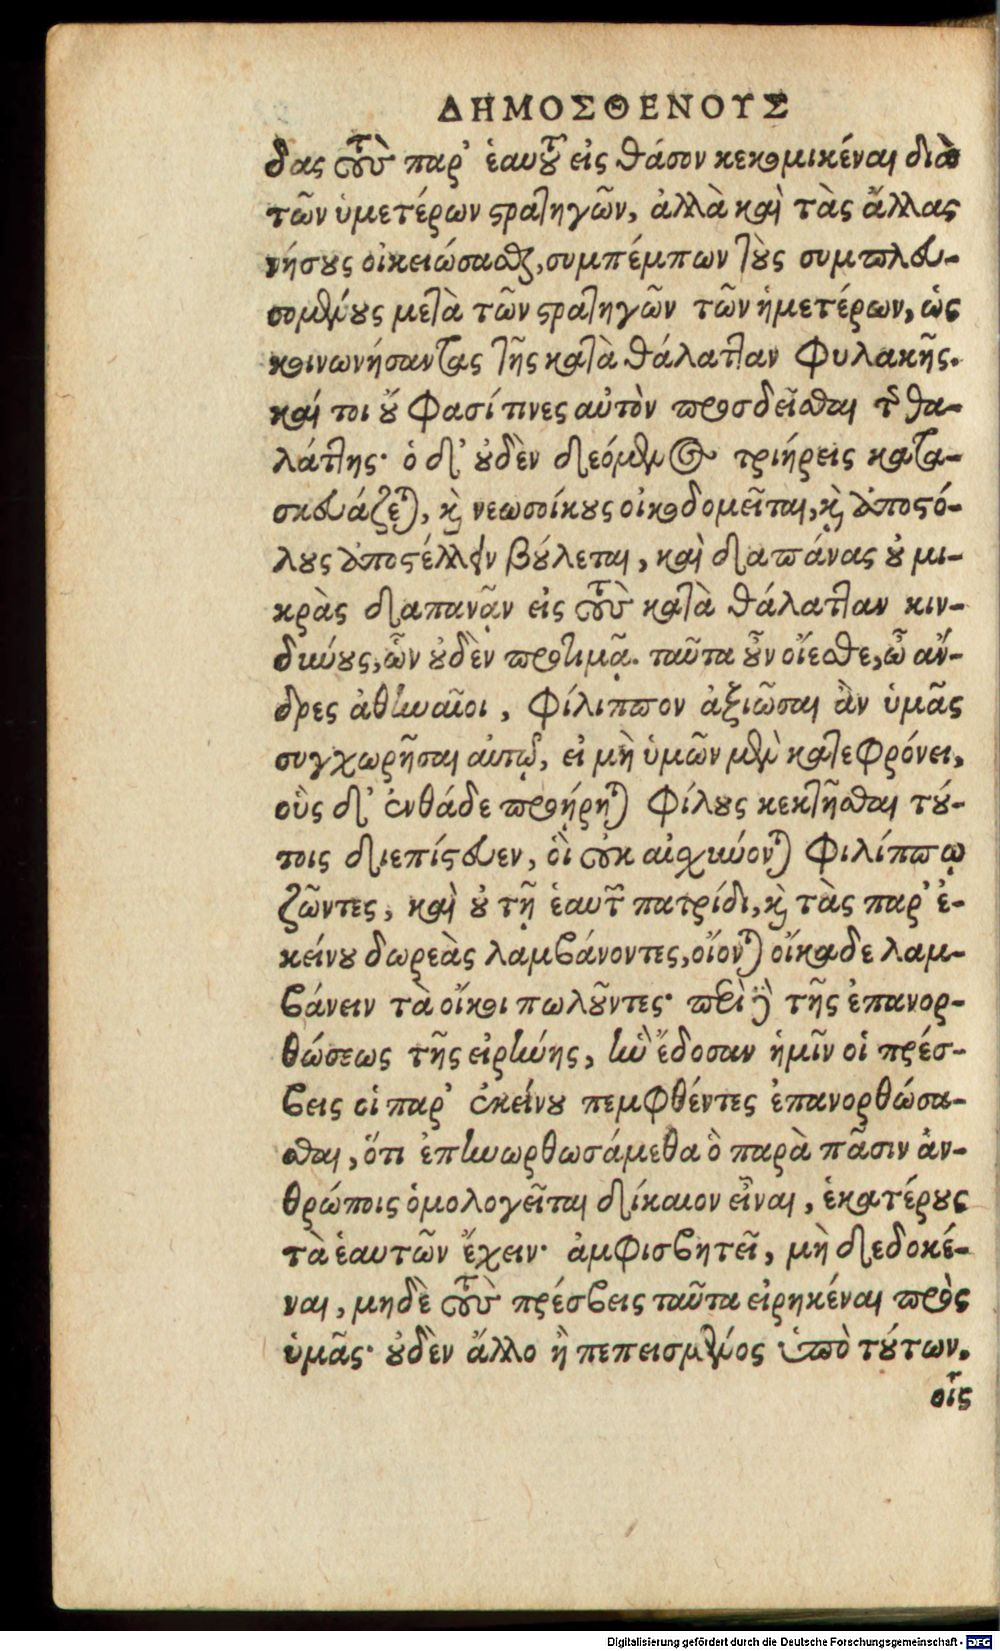 ΔΗΜΟΣΘΕΝΟΥΣ
δας τοὺς παρ' ἑαυτοῦ εἰς θάσον κεκομικέναι διὰ
τῶν ὑμετέρων στρατηγῶν, ἀλλὰ καὶ τὰς ἄλλας
νήσους οἰκειώσασθαι, συμπέμπων τοὺς συμπλευ-
σομένους μετὰ τῶν στρατηγῶν τῶν ἡμετέρων, ὡς
κοινωνήσαντας τῆς κατὰ θάλατταν φυλακῆς.
καί τοι οὔ φασί τινες αὐτὸν προσδεῖσθαι τῆς θα-
λάττης· ὁ δ' οὐδὲν δεόμενος τριήρεις κατα-
σκευάζεται, καὶ νεωσοίκους οἰκοδομεῖται, καὶ ἀποστό-
λους ἀποστέλλειν βούλεται, καὶ δαπάνας οὐ μι-
κρὰς δαπανᾷν εἰς τοὺς κατὰ θάλατταν κιν-
δύνους, ὧν οὐδὲν προτιμᾷ. ταῦτα οὖν οἴεσθε, ὦ ἄν-
δρες ἀθηναῖοι, Φίλιππον ἀξιῶσαι ἂν ὑμᾶς
συγχωρῆσαι αὐτῷ, εἰ μὴ ὑμῶν μὲν κατεφρόνει,
οὓς δ' ἐνθάδε προῄρηται φίλους κεκτῆσθαι τού-
τοις διεπίστευεν, οἳ οὐκ αἰσχύνονται Φιλίππῳ
ζῶντες, καὶ οὐ τῇ ἑαυτῶν πατρίδι, καὶ τὰς παρ' ἐ-
κείνου δωρεὰς λαμβάνοντες, οἴονται οἴκαδε λαμ-
βάνειν τὰ οἴκοι πωλοῦντες· περὶ δὲ τῆς ἐπανορ-
θώσεως τῆς εἰρήνης, ἣν ἔδοσαν ἡμῖν οἱ πρέσ-
βεις οἱ παρ' ἐκείνου πεμφθέντες ἐπανορθώσα-
σθαι, ὅτι ἐπηνωρθωσάμεθα ὃ παρὰ πᾶσιν ἀν-
θρώποις ὁμολογεῖται δίκαιον εἶναι, ἑκατέρους
τὰ ἑαυτῶν ἔχειν· ἀμφισβητεῖ, μὴ δεδοκέ-
ναι, μηδὲ τοὺς πρέσβεις ταῦτα εἰρηκέναι πρὸς
ὑμᾶς· οὐδὲν ἄλλο ἢ πεπεισμένος ὑπὸ τούτων,
οἷς
Digitalisierung gefördert durch die Deutsche Forschungsgemeinschaft - DFG